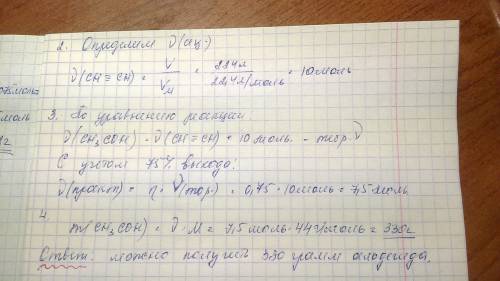 2. Определим ν(ац.)
ν(CH≡CH) = V/Vм = 224л/22,4л/моль = 10моль
3. По уравнению реакции
ν(CH₃COH) = ν(CH≡CH) = 10 моль. - теор. ν
С учетом 75% выхода:
ν(практ) = η · ν(теор.) = 0,75 · 10моль = 7,5 моль
4.
m(CH₃COH) = ν · M = 7,5 моль · 44г/моль = 330г
Ответ: можно получить 330 грамм альдегида.
моль